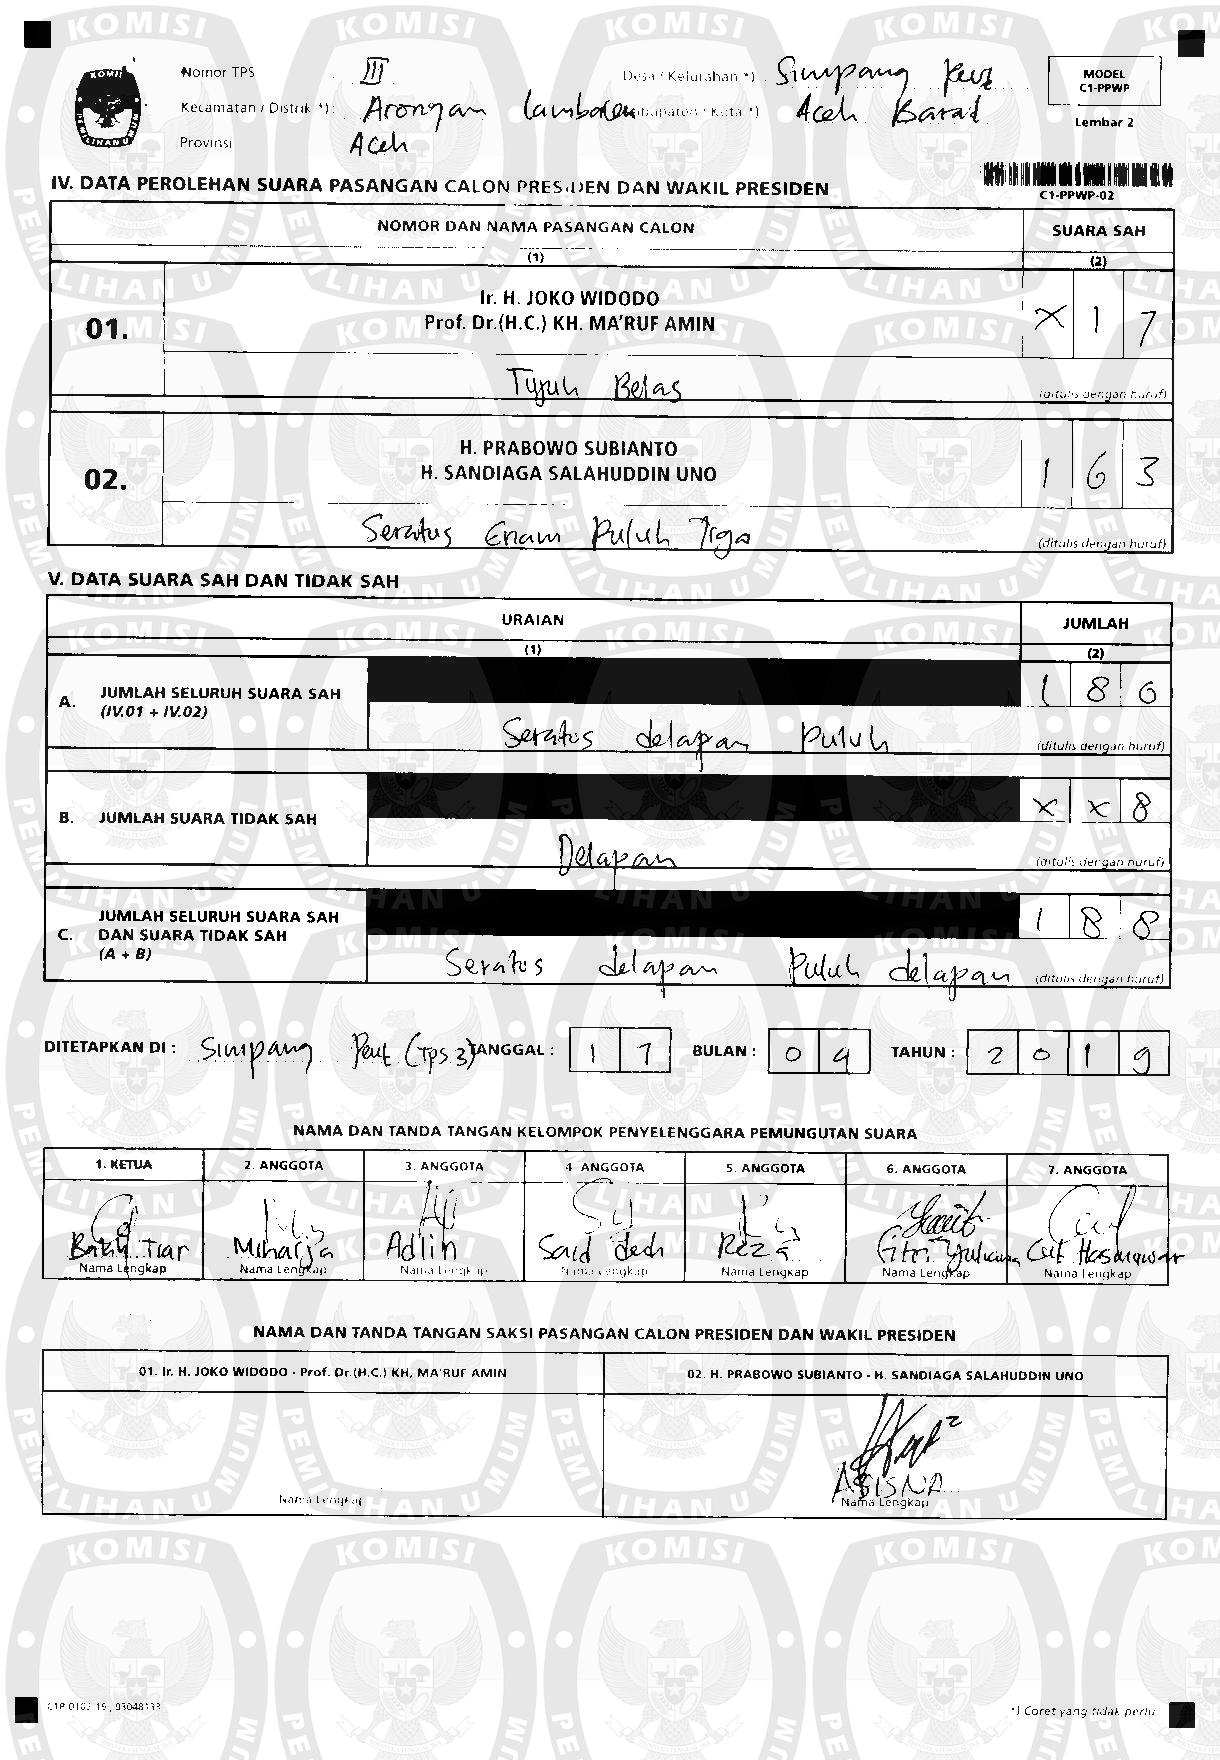 Nomor TPS : III Desa / Kelurahan *) : Simpang Peut
Kecamatan / Distrik *) : Arongan Lambalek Kabupaten / Kota *) Aceh Barat
Provinsi Aceh
MODEL
C1-PPWP
Lembar 2
IV. DATA PEROLEHAN SUARA PASANGAN CALON PRESIDEN DAN WAKIL PRESIDEN
C1-PPWP-02
NOMOR DAN NAMA PASANGAN CALON SUARA SAH
(1) (2)
01. Ir. H. JOKO WIDODO
Prof. Dr.(H.C.) KH. MA'RUF AMIN X 1 7
Tujuh Belas (ditulis dengan huruf)
02. H. PRABOWO SUBIANTO
H. SANDIAGA SALAHUDDIN UNO 1 6 3
Seratus Enam Puluh Tiga (ditulis dengan huruf)
V. DATA SUARA SAH DAN TIDAK SAH
URAIAN JUMLAH
(1) (2)
A. JUMLAH SELURUH SUARA SAH
(IV.01 + IV.02) 1 8 0
Seratus delapan Puluh (ditulis dengan huruf)
B. JUMLAH SUARA TIDAK SAH X X 8
Delapan (ditulis dengan huruf)
C. JUMLAH SELURUH SUARA SAH
DAN SUARA TIDAK SAH
(A + B) 1 8 8
Seratus delapan Puluh delapan (ditulis dengan huruf)
DITETAPKAN DI : Simpang Peut (Tps 3) TANGGAL : 1 7 BULAN : 0 4 TAHUN : 2 0 1 9
NAMA DAN TANDA TANGAN KELOMPOK PENYELENGGARA PEMUNGUTAN SUARA
1. KETUA 2. ANGGOTA 3. ANGGOTA 4 ANGGOTA 5. ANGGOTA 6. ANGGOTA 7. ANGGOTA
Bakhtiar Miharja Adlin Said Reza Fitri Yuliana Cut Hasanawar
Nama Lengkap Nama Lengkap Nama Lengkap Nama Lengkap Nama Lengkap Nama Lengkap Nama Lengkap
NAMA DAN TANDA TANGAN SAKSI PASANGAN CALON PRESIDEN DAN WAKIL PRESIDEN
01. Ir. H. JOKO WIDODO - Prof. Dr.(H.C.) KH. MA'RUF AMIN 02. H. PRABOWO SUBIANTO - H. SANDIAGA SALAHUDDIN UNO
ASISNA
Nama Lengkap Nama Lengkap
*) Coret yang tidak perlu